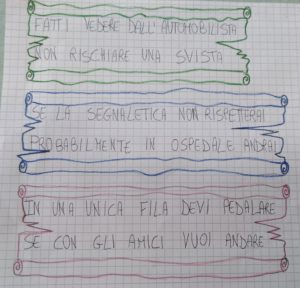 FATTI VEDERE DALL'AUTOMOBILISTA
NON RISCHIARE UNA SVISTA
SE LA SEGNALETICA NON RISPETTERAI
PROBABILMENTE IN OSPEDALE ANDRAI
IN UNA UNICA FILA DEVI PEDALARE
SE CON GLI AMICI VUOI ANDARE